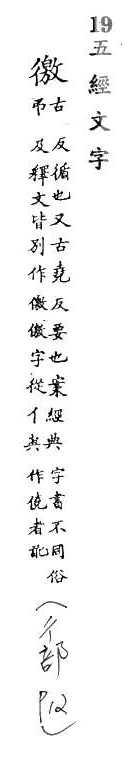 19 五經文字
徼 古弔反循也又古堯反要也案經典及釋文皆別作儌儌字從亻與字書不同俗作僥者訛(彳部 P12)